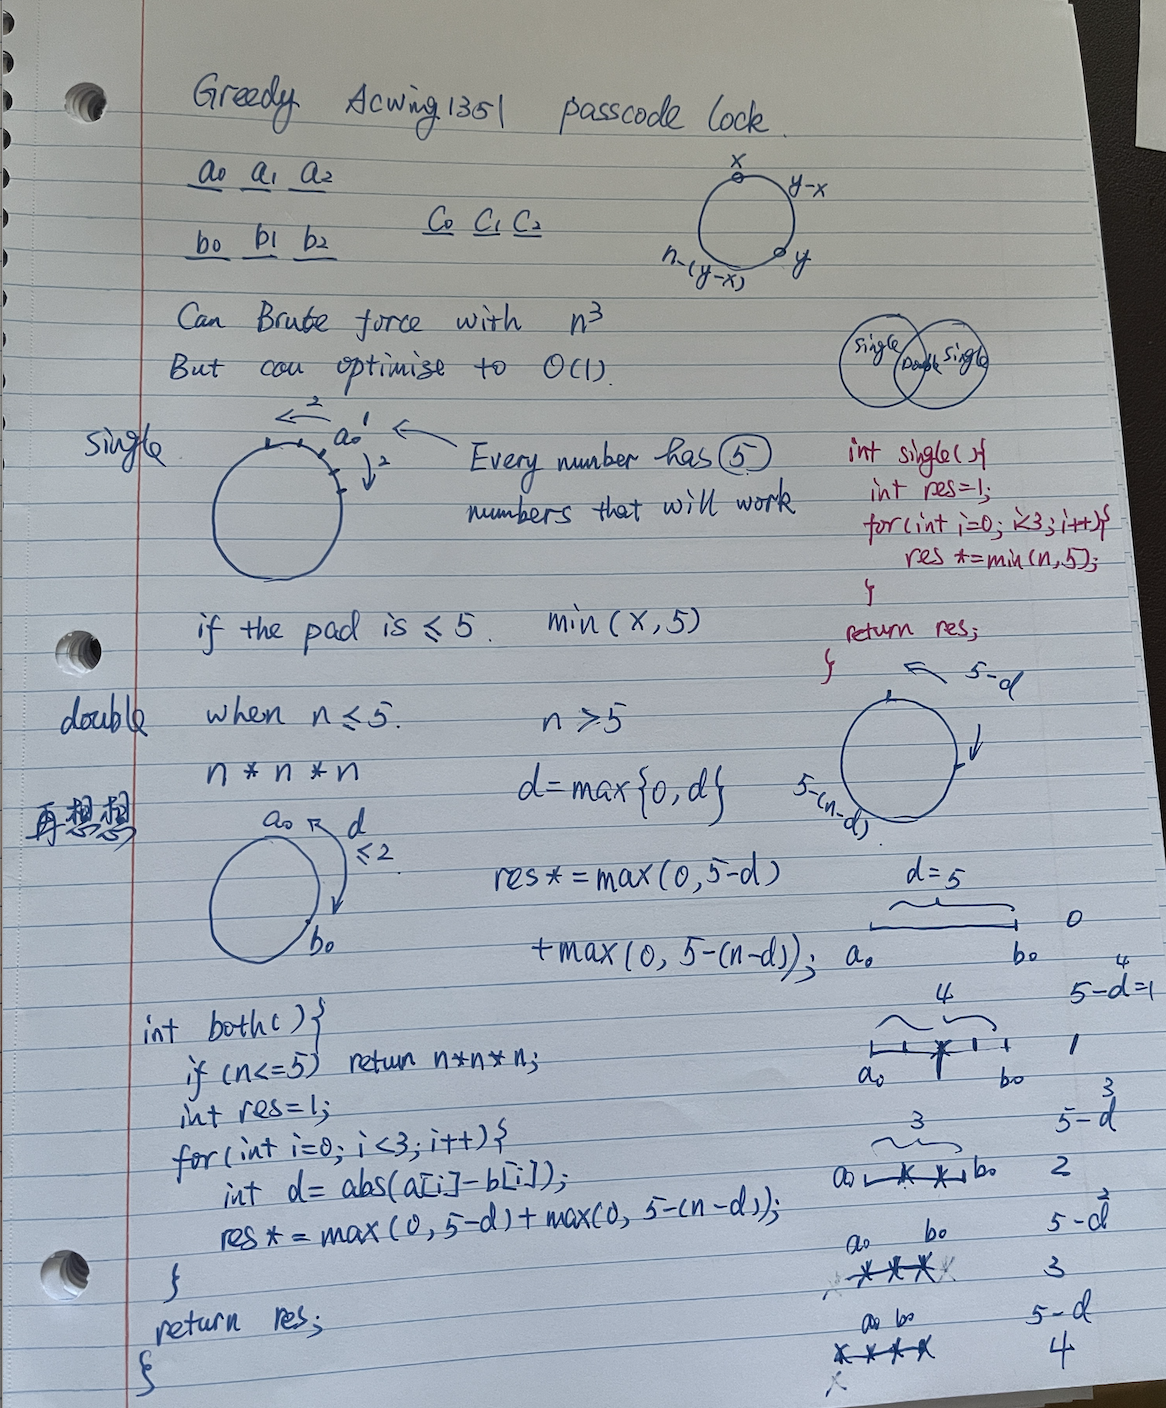 Greedy Acwing 1351 passcode lock.
a0 a1 a2
b0 b1 b2
C0 C1 C2
x
y-x
y
n-(y-x)
Can Brute force with n³
But can optimise to O(1).
Single Double Single
single
2
a0
1
2
Every number has 5
numbers that will work
int single(){
int res=1;
for(int i=0; i<3; i++){
res *=min(n,5);
}
return res;
}
if the pad is ≤ 5. min(x,5)
double when n ≤ 5. n > 5
n * n * n
d=max{0,d}
5-d
5-(n-d)
再想想
a0
d
≤2
b0
res*=max(0,5-d)
+max(0, 5-(n-d));
d=5
a0 b0 0
4
5-d=1
4
a0 b0 1
3
5-d
3
a0 b0 2
2
5-d
a0 b0
3
5-d
a0 b0
4
int both(){
if (n<=5) return n*n*n;
int res=1;
for(int i=0; i<3; i++){
int d= abs(a[i]-b[i]);
res*= max(0,5-d)+max(0, 5-(n-d));
}
return res;
}